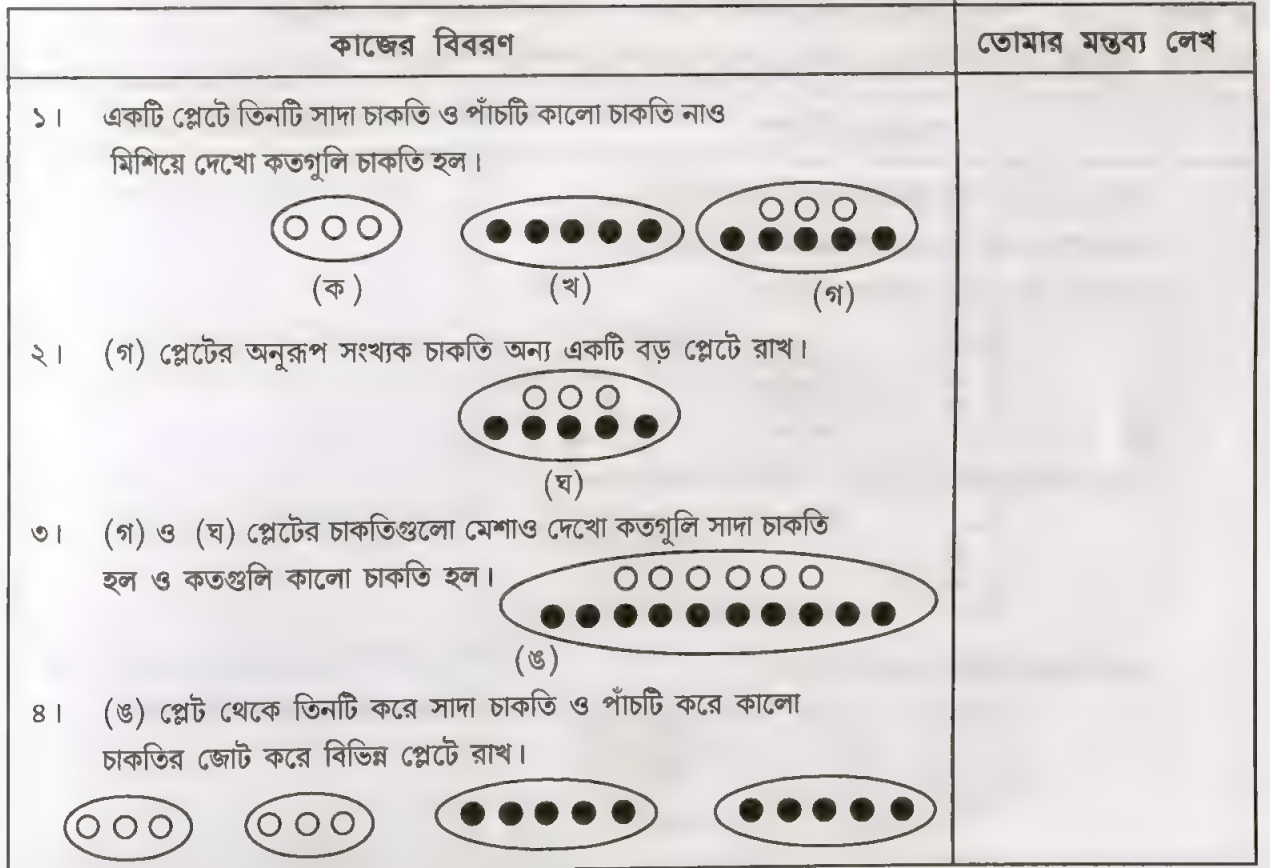 কাজের বিবরণ
তোমার মন্তব্য লেখ
১। একটি প্লেটে তিনটি সাদা চাকতি ও পাঁচটি কালো চাকতি নাও
মিশিয়ে দেখো কতগুলি চাকতি হল।
(ক) (খ) (গ)
২। (গ) প্লেটের অনুরূপ সংখ্যক চাকতি অন্য একটি বড় প্লেটে রাখ।
(ঘ)
৩। (গ) ও (ঘ) প্লেটের চাকতিগুলো মেশাও দেখো কতগুলি সাদা চাকতি
হল ও কতগুলি কালো চাকতি হল।
(ঙ)
৪। (ঙ) প্লেট থেকে তিনটি করে সাদা চাকতি ও পাঁচটি করে কালো
চাকতির জোট করে বিভিন্ন প্লেটে রাখ।